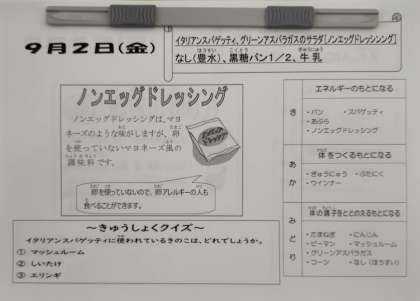 9月2日(金)
イタリアンスパゲッティ、グリーンアスパラガスのサラダ[ノンエッグドレッシング]
なし(豊水)、黒糖パン1/2、牛乳
ノンエッグドレッシング
ノンエッグドレッシングは、マヨ
ネーズのような味がしますが、卵
を使っていないマヨネーズ風の
調味料です。
卵を使っていないので、卵アレルギーの人も
食べることができます。
～きゅうしょくクイズ～
イタリアンスパゲッティに使われているきのこは、どれでしょうか。
① マッシュルーム
② しいたけ
③ エリンギ
エネルギーのもとになる
き
・パン ・スパゲティ
・あぶら
・ノンエッグドレッシング
体をつくるもとになる
あか
・ぎゅうにゅう ・ぶたにく
・ウインナー
体の調子をととのえるもとになる
みどり
・たまねぎ ・にんじん
・ピーマン ・マッシュルーム
・グリーンアスパラガス
・コーン ・なし(ほうすい)